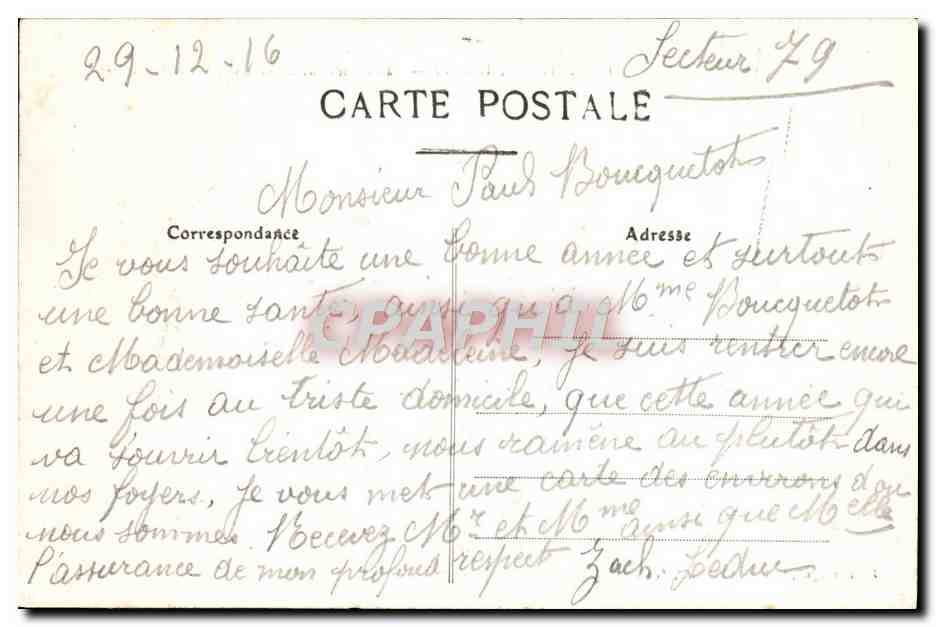 29-12-16 Secteur 79
CARTE POSTALE
Monsieur Paul Boucquetot
Correspondance Adresse
Je vous souhaîte une bonne année et surtout
une bonne santé, ainsi qu'a Mme Boucquetot
CPAPHIL
et Mademoiselle Madeleine, je suis rentrer encore
une fois au triste domicile, que cette année qui
va s'ouvrir bientôt, nous ramène au plutôt dans
nos foyers, je vous met une carte des environs d'ou
nous sommes. Recevez Mr et Mme ainsi que Melle
l'assurance de mon profond respect Zach. Leduc